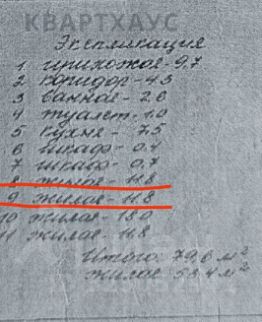 КВАРТХАУС
Экспликация
1 прихожая - 9,7
2 коридор - 4.3
3 ванная - 2.6
4 туалет - 1.0
5 кухня - 7.5
6 шкаф - 0.4
7 шкаф - 0,7
8 жилая - 11.8
9 жилая - 11.8
10 жилая - 18.0
11 жилая - 11.8
Итого: 79,6 м²
жилое 53,4 м²